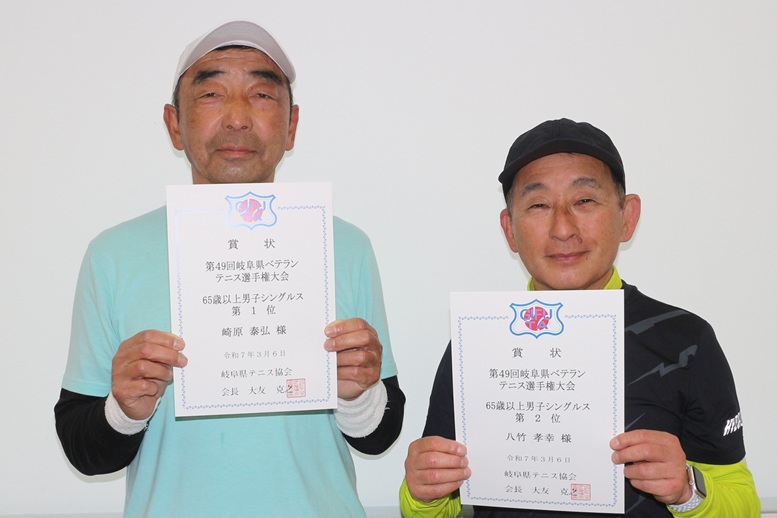 賞状
第49回岐阜県ベテラン
テニス選手権大会
65歳以上男子シングルス
第1位
崎原 泰弘 様
令和7年3月6日
岐阜県テニス協会
会長 大友 克之
賞状
第49回岐阜県ベテラン
テニス選手権大会
65歳以上男子シングルス
第2位
八竹 孝幸 様
令和7年3月6日
岐阜県テニス協会
会長 大友 克之